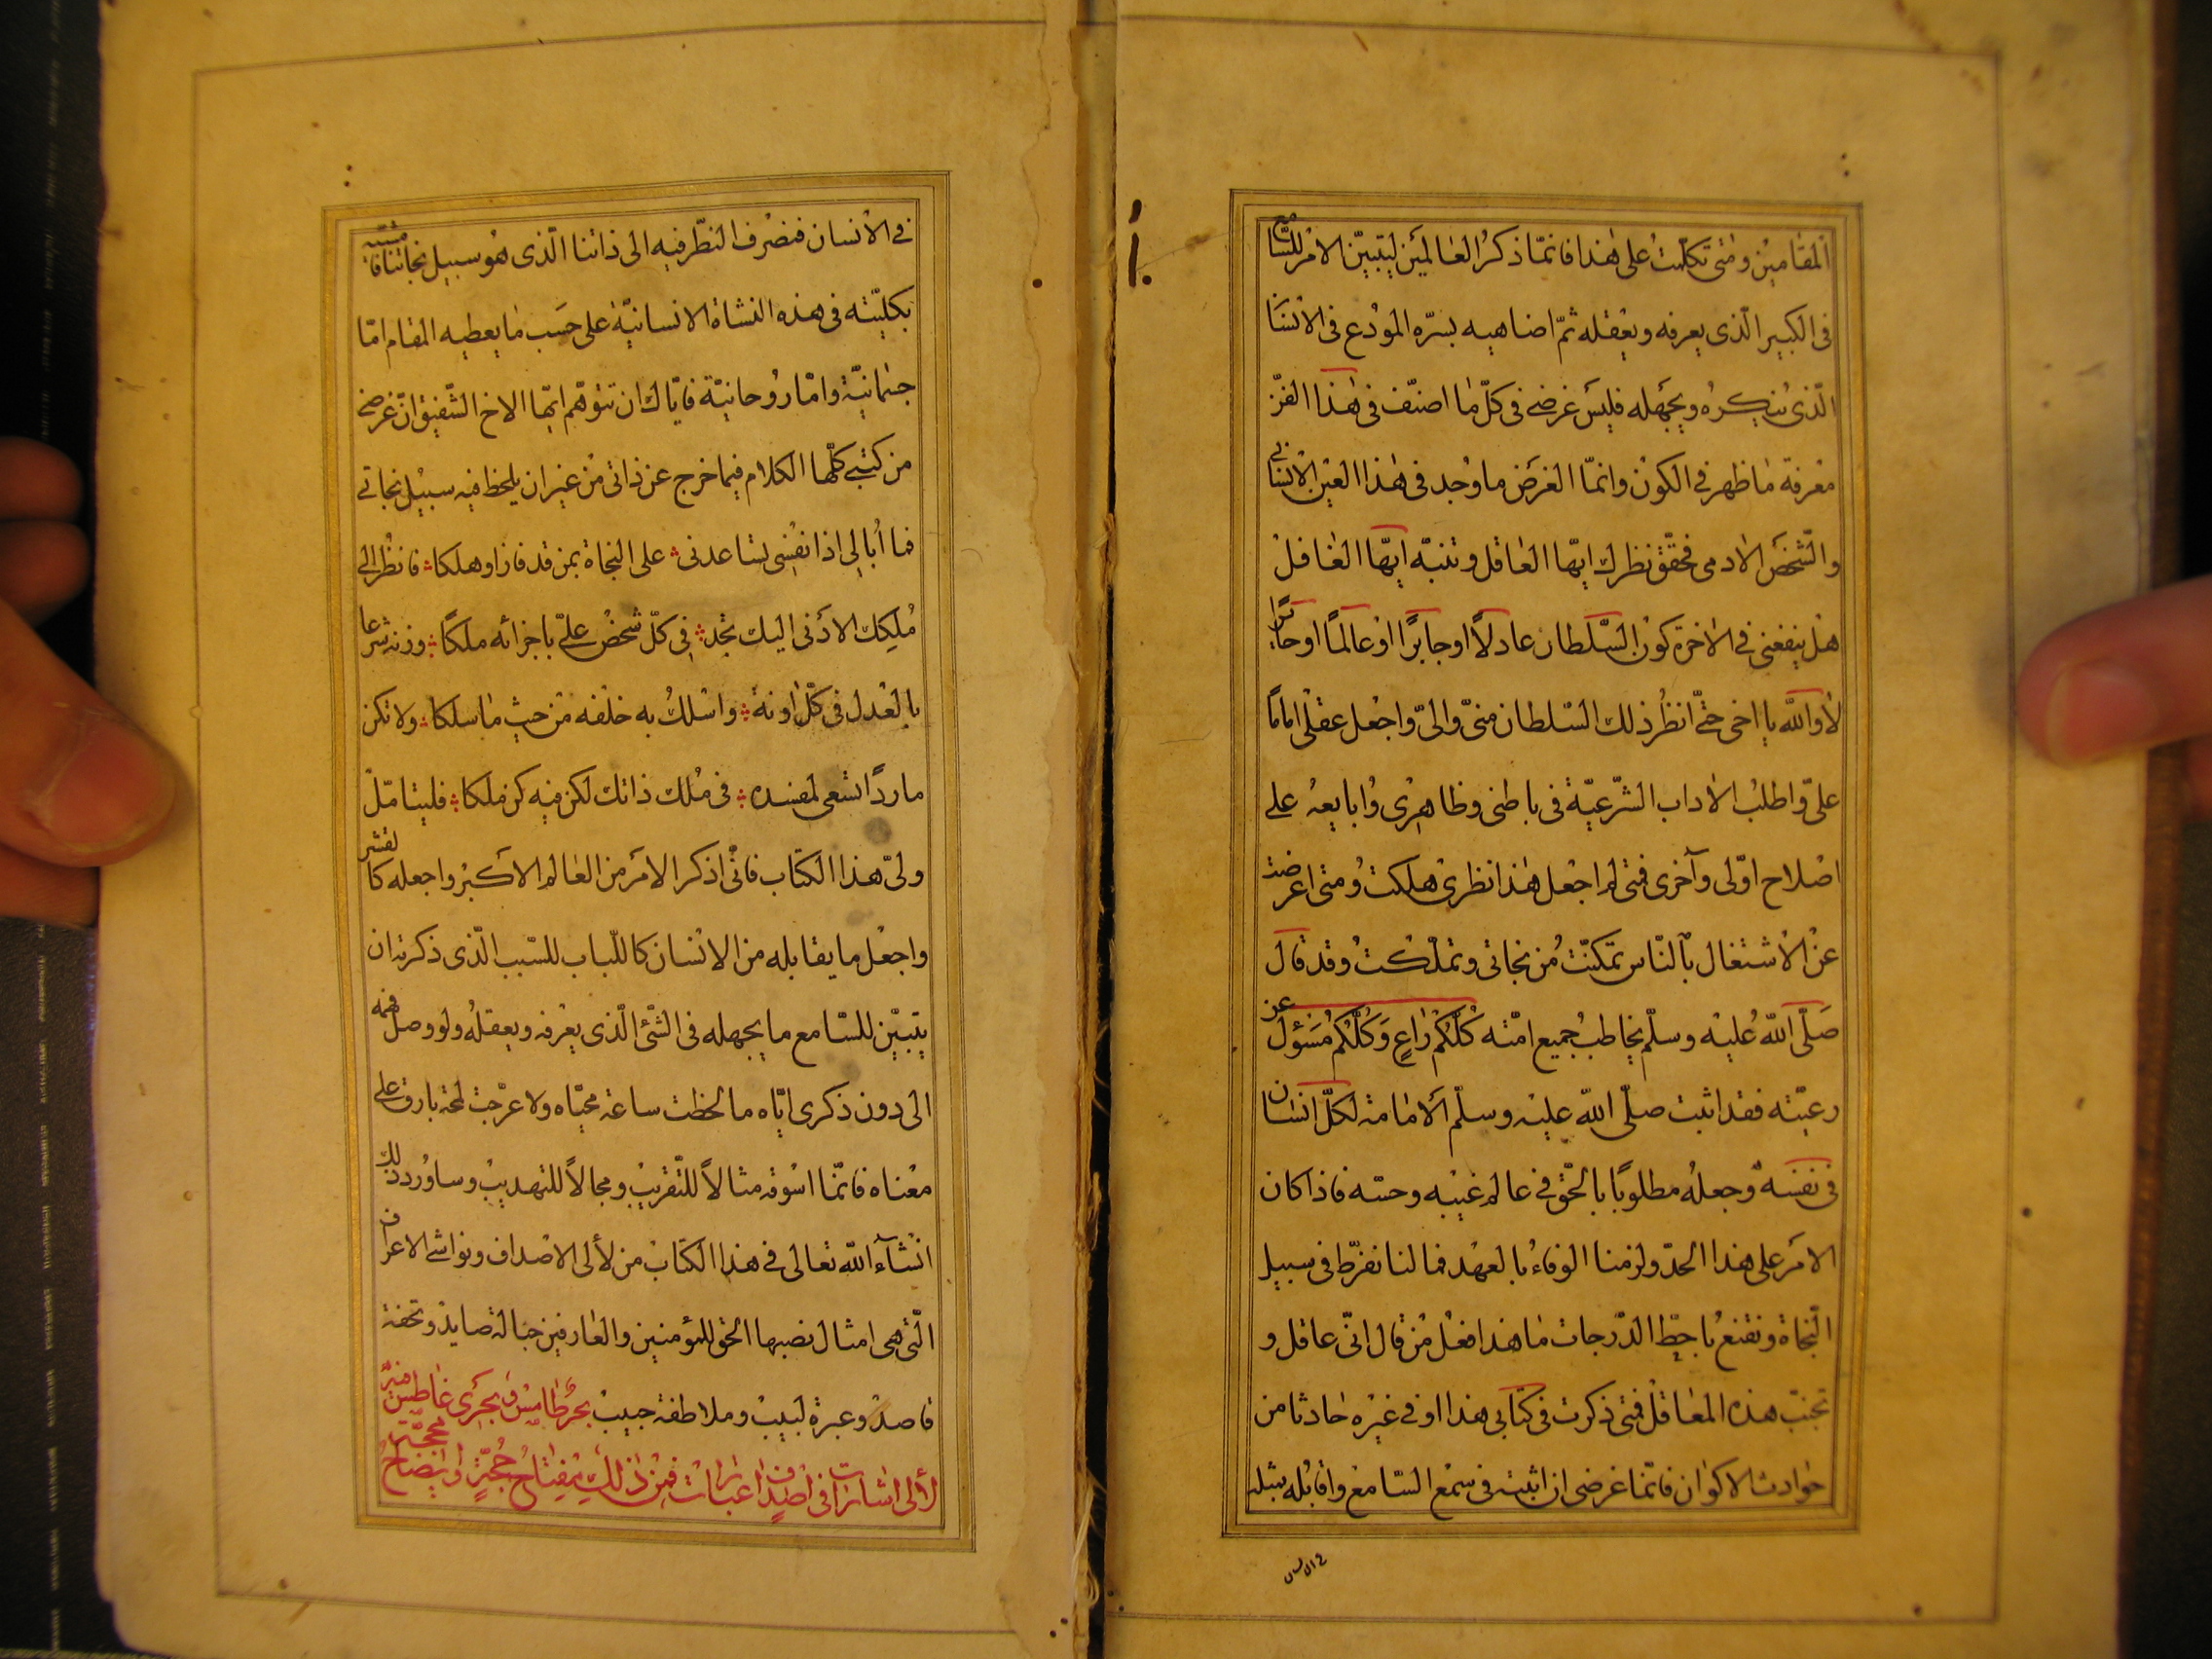 المقامين ومتى تكلمت على هذا فانما ذكر العالمين ليتبين الامر للسامع
فى الكبير الّذى يعرفه ويعقله ثمّ اضاهيه بسرّه المودع فى الانسان
الّذى ينكره ويجهله فليس غرضى فى كلّ ما اصنّف فى هذا الفنّ
معرفة ما ظهر فى الكون وانمّا الغرض ما وجد فى هذا العين الانسانى
والشّخص الادمى فحقّق نظرك ايّها العاقل وتنبّه ايّها الغافل
هل ينفعنى فى الاخرة كون السّلطان عادلاً او جابرًا او عالمًا او حايرًا
لا والله يا اخى حتّى انظر ذلك السّلطان منىّ والىّ واجعل عقلى امامًا
علىّ واطلب الاداب الشّرعيّة فى باطنى وظاهرى وابايعه على
اصلاح اوّلى وآخرى فمتى لم اجعل هذا نظرى هلكت ومتى اعرضت
عن الاشتغال بالنّاس تمكّنت من نجاتى وتملّكت وقد قال
صَلّى الله عليه وسلّم يخاطب جميع امّته كُلّكُمْ رَاعٍ وَكُلّكُم مَسؤل عن
رعيّته فقد اثبت صلّى الله عليه وسلّم الامامة لكلّ انسان
فى نفسه وجعله مطلوبًا بالحّق فى عالم غيبه وحسّه فاذا كان
الامر على هذا الحدّ ولزمنا الوفاء بالعهد فما لنا نفرّط فى سبيل
النّجاة ونقنع باحطّ الدّرجات ما هذا فعل من قال انّى عاقل و
تجنّب هذه المعاقل فمتى ذكرت فى كتابى هذا او فى غيره حادثا من
حوادث الاكوان فانّما غرضى ان اثبته فى سمع السّامع واقابله بمثله
فى الانسان
فى الانسان فنصرف النّظر فيه الى ذاتنا الّذى هو سبيل نجاتنا فامشيه
بكليّته فى هذه النشاة الانسانيّة على حسب ما يعطيه المقام امّا
جثمانيّة وامّا روحانيّة فايّاك ان تتوهّم ايّها الاخ الشّفيق انّ غرضى
من كتبى كلّها الكلام فيما خرج عن ذاتى من غير ان يلحظ فيه سبيل نجاتى
فما اُبالى اذا نفسى تساعدنى على النجاة بمن قد فاز او هلكا فانظر الى
مُلكِك الادنى اليك تجد فى كلّ شخص على اجزائه ملكًا وزنه شرعا
بالعدل فى كلّ اونة واسلك به خلفه من حيث ما سلكا ولا تكن
ماردًا تسعى لمفسده فى مُلك ذاتك لكن فيه كن ملكا فليتامّل
ولىّ هذا الكتاب فانّى اذكر الامر من العالم الاكبر واجعله كالقشر
واجعل ما يقابله من الانسان كاللّباب للسّبب الّذى ذكرته ان
يتبيّن للسّامع ما يجهله فى الشّئ الّذى يعرفه ويعقله ولو وصل فهمه
الى دون ذكرى ايّاه ما لحظت ساعة محيّاه ولا عرّجت لمحة بارق على
معناه فانّما اسوقه مثالاً للتّقريب ومجالاً للتهديب وساورد ذلك
انشآء الله تعالى فى هذا الكتاب من لألى الاصداف ونواشى الاعراف
الّتى هى امثال نصبها الحق للمؤمنين والعارفين حبالة صايد وتحفة
قاصد وعبرة لبيب وملاطفة حبيب بحر طامس فى بحرى غاطس فيه
لألى اشارات فى اصداف عبارات فمن ذلك مفتاح حُجّةٍ وايضاح محجّة